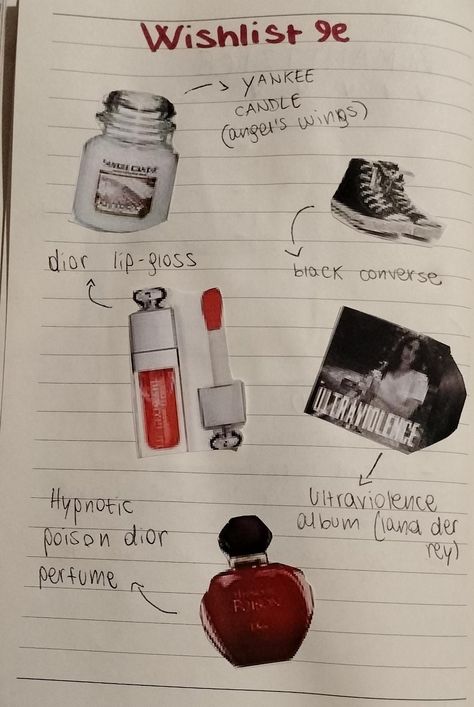 Wishlist ୨୧
YANKEE
CANDLE
(angel's wings)
YANKEE CANDLE
dior lip-gloss
black converse
ULTRAVIOLENCE
Hypnotic
poison dior
perfume
Ultraviolence
album (lana der
rey)
POISON